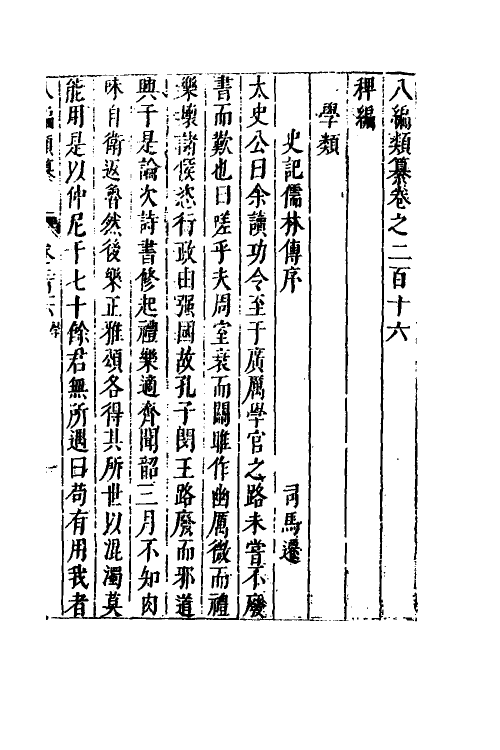 八編類纂卷之二百十六
稗編
學類
史記儒林傳序 司馬遷
太史公曰余讀功令至于廣厲學官之路未嘗不廢
書而歎也曰嗟乎夫周室衰而關雎作幽厲微而禮
樂壞諸侯恣行政由强國故孔子閔王路廢而邪道
興于是論次詩書修起禮樂適齊聞韶三月不知肉
味自衛返魯然後樂正雅頌各得其所世以混濁莫
能用是以仲尼干七十餘君無所遇曰苟有用我者
八編類纂